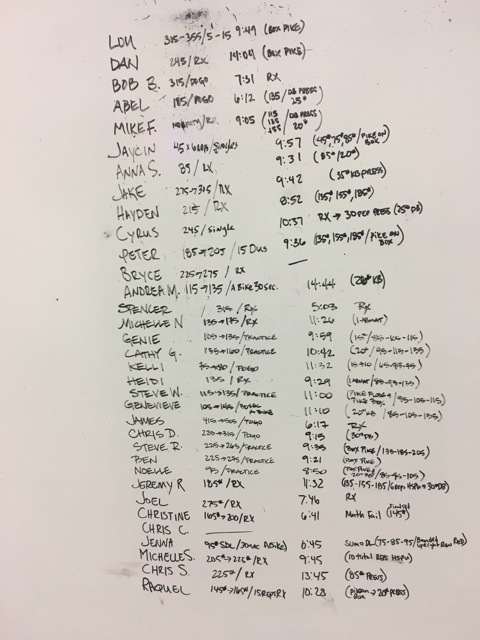 LOU 315-355/5-15 9:49 (BOX PIKE)
DAN 245/RX 14:04 (BOX PIKE)
BOB B. 315/POGO 7:31 RX
ABEL 185/POGO 6:12 (135/DB PRESS 25#)
MIKE F. 9:05 (115 135 155/DB PRESS 20#)
JAYCIN 45x6 /SINGLES 9:57 (45#,75,85#/PIKE ON BOX)
ANNA S. 85/RX 9:31 (85#/20#)
JAKE 275→315/RX 9:42 (35# KB PRESS)
HAYDEN 215/RX 8:52 (135, 155#, 185#)
CYRUS 245/Single 10:37 RX → 30 PRESS (25# DB)
PETER 185→205/15 DUs 9:36 (135, 155#, 185#/PIKE ON BOX)
BRYCE 225→275/RX —
ANDREA M. 115→135/ABIKE 30 SEC. 14:44 KB)
SPENCER 315/RX 5:03 RX
MICHELLE N 135→175/RX 11:26
GENIE 105→135/PRACTICE 9:59 (15#/85-105-115)
CATHY G. 135→160/PRACTICE 10:42 (20#/95-115-135)
KELLI /POGO 11:32
HEIDI 135/RX 9:29
STEVE W. 115→135/PRACTICE 11:00 /95-105-115)
GENEVIEVE 11:10 /85-105-135)
JAMES /POGO 6:17 RX
CHRIS D. 225→315/POGO 9:15 (30# DB)
STEVE R. 225→265/PRACTICE 9:35 (BOX PIKE/135-185-205)
BEN 225→275/PRACTICE 9:21 (BOX PIKE)
NOELLE 95/PRACTICE 8:50
JEREMY R 185#/RX 11:32
JOEL 275#/RX 7:46 RX
CHRISTINE /RX 6:41 Math Fail (145#)
CHRIS C. —
JENNA 95# SDL/30sec ABike) 6:45 SUMO DL (75-85-95/
MICHELLE S. 205#→225#/RX 9:45 (10 total REG HSPU)
CHRIS S. 225#/RX 13:45 (65# PRESS)
RAQUEL 145#→165#/15 REPS RX 10:28